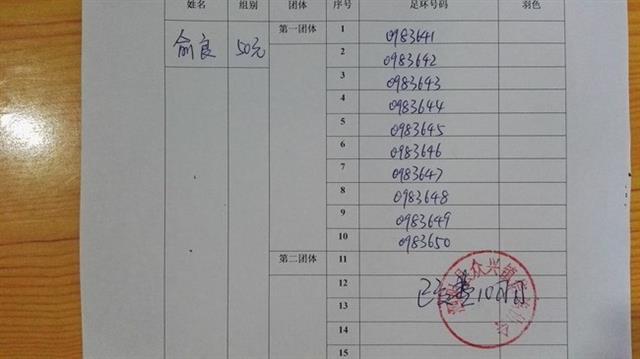 姓名 组别 团体 序号 足环号码 羽色
俞良 50元 第一团体 1 0983641
2 0983642
3 0983643
4 0983644
5 0983645
6 0983646
7 0983647
8 0983648
9 0983649
10 0983650
第二团体 11
12
13
14
15
县众兴镇